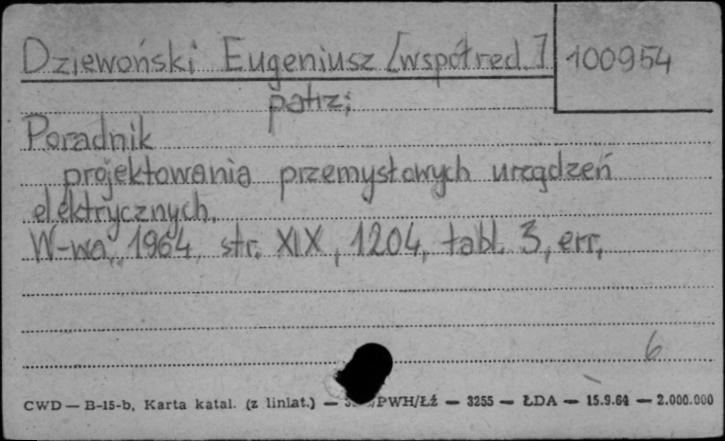 Dziewoński Eugeniusz [współred.] 100954
patrz:
Poradnik
projektowania przemysłowych urządzeń
elektrycznych.
W-wa, 1964, str. XIX, 1204, tabl. 3, err.
6
CWD — B-15-b, Karta katal. (z liniat.) — /PWH/Łź — 3255 — ŁDA — 15.9.64 — 2.000.000